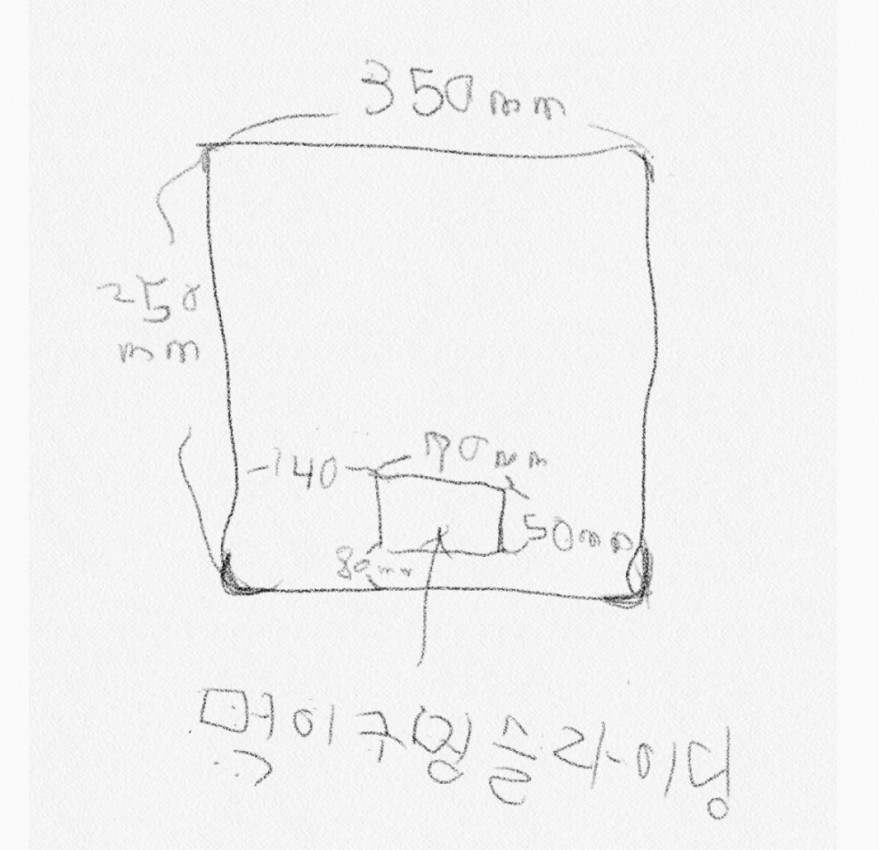 350mm
250
mm
140
70mm
50mm
80mm
먹이구멍슬라이딩